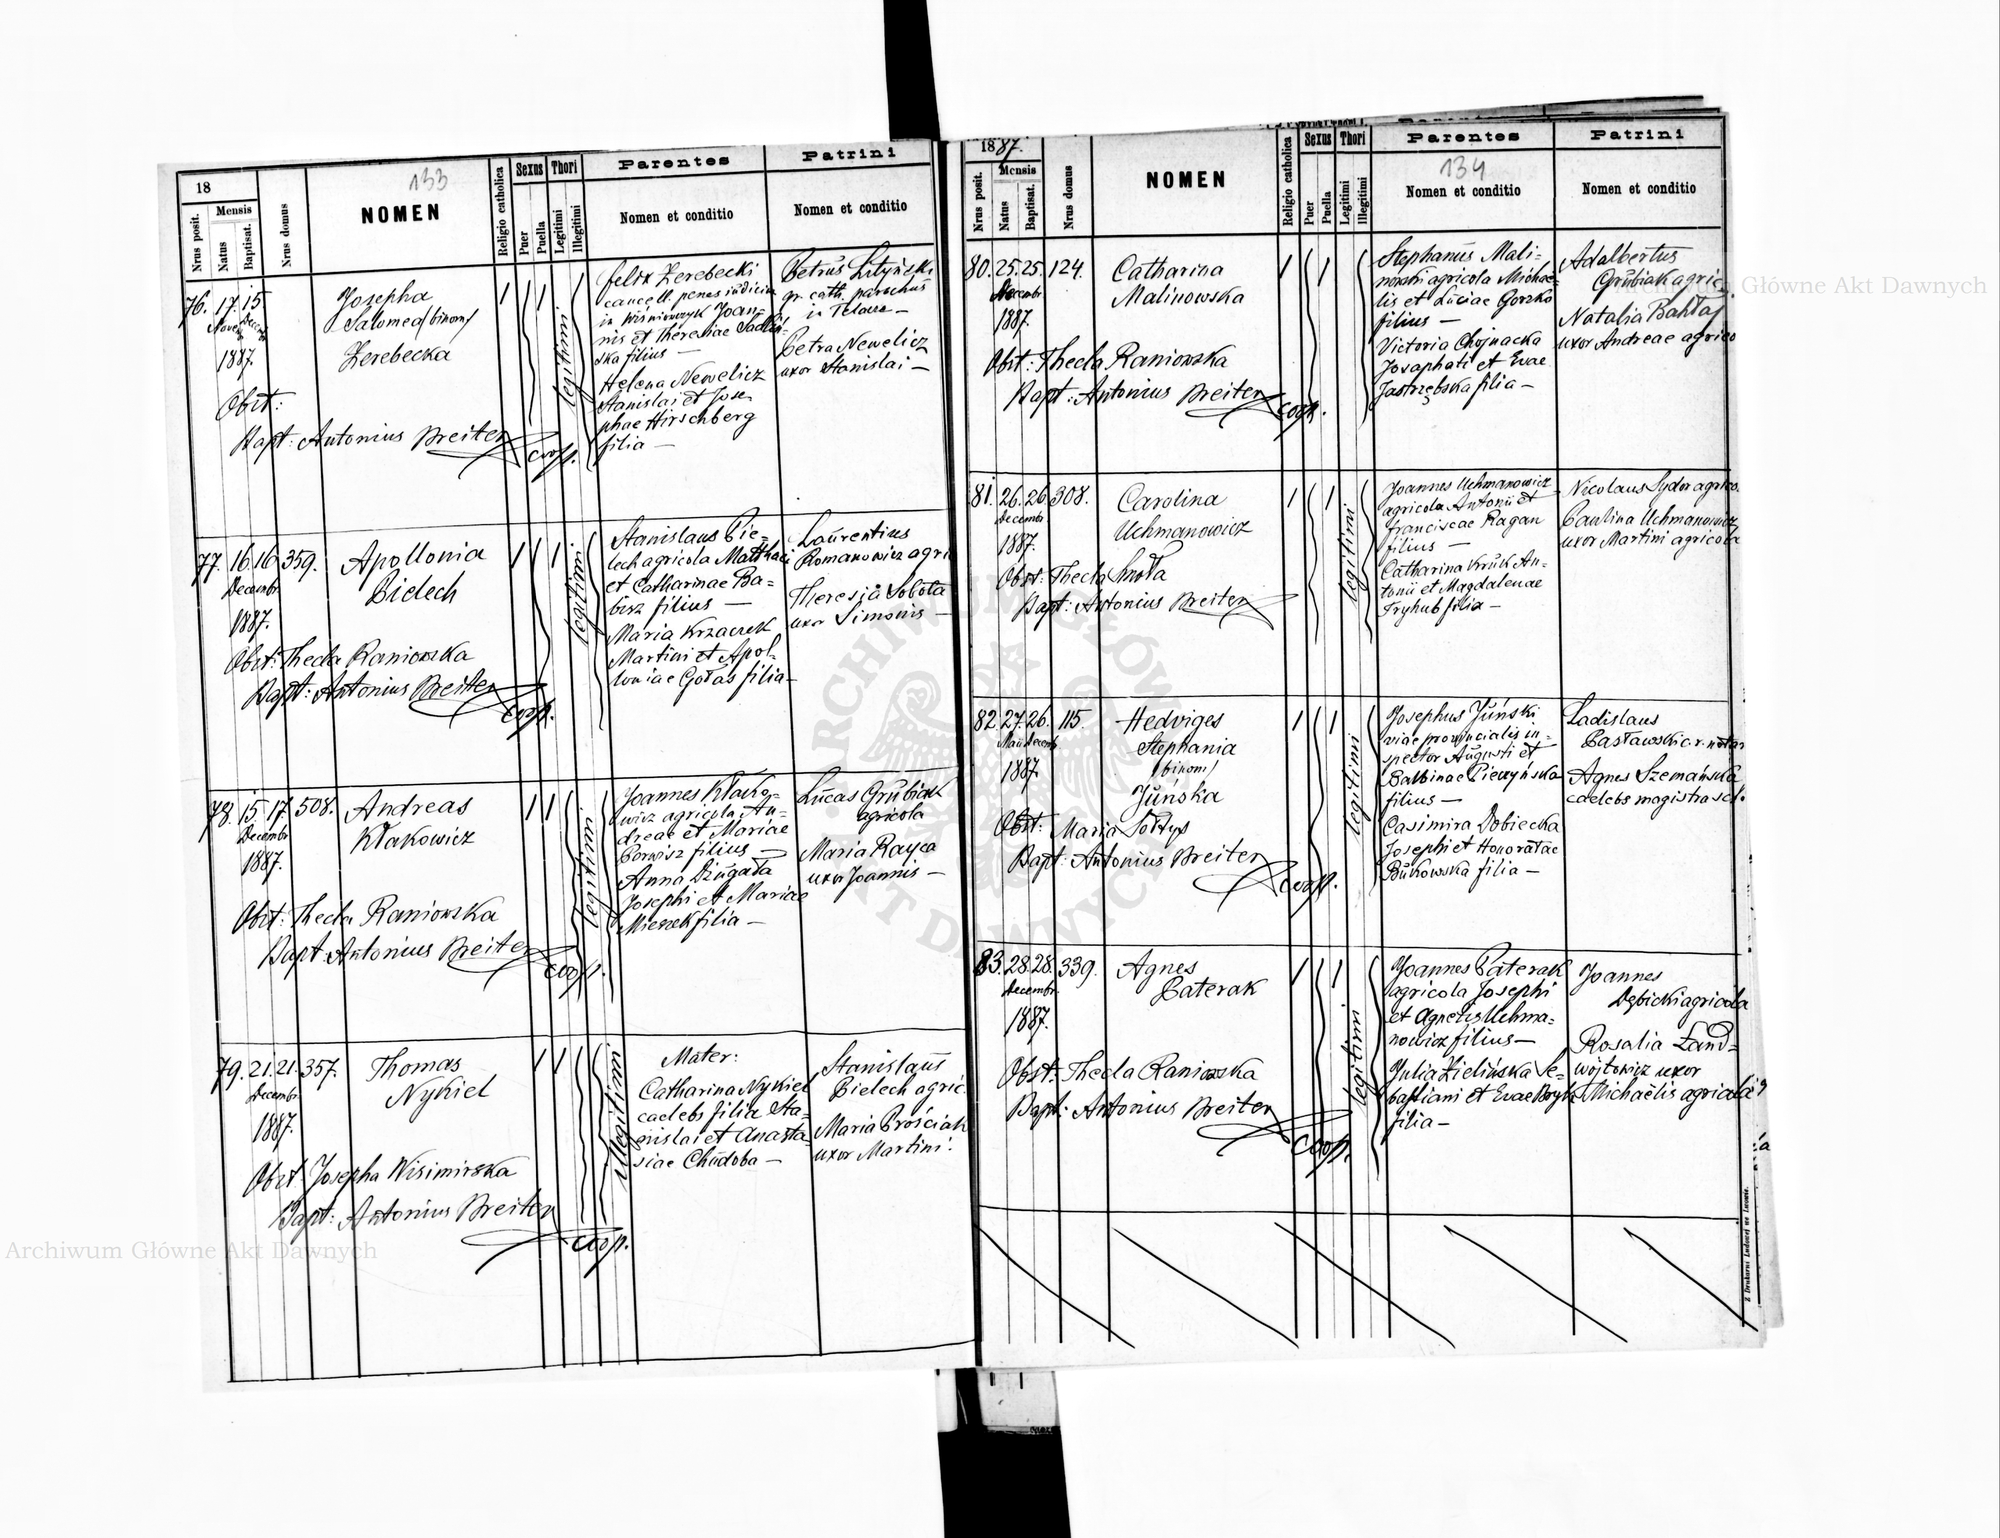 133
18
Nrus posit.
Mensis
Natus
Baptisat.
Nrus domus
NOMEN
Religio catholica
Sexus
Puer
Puella
Thori
Legitimi
Illegitimi
Parentes
Nomen et conditio
Patrini
Nomen et conditio
76. 17. 15
Novem Decem
1887.
Josepha
Salomea /binom/
Zerebecka
Obst:
Bapt: Antonius Breiter
coop.
legitimi
Felix Zerebecki
cancell. penes iudicium
in Wiśniowczyk Joan-
nis et Theresiae Sadliń-
ska filius —
Helena Newelicz
Stanislai et Jose-
phae Hirschberg
filia —
Petrus
gr. cath. parochus
in
Petra Newelicz
uxor Stanislai —
77. 16. 16. 359.
Decembr.
1887.
Apollonia
Bielech
Obst: Thecla Raniowska
Bapt: Antonius Breiter
coop.
legitimi
Stanislaus Bie-
lech agricola Matthaei
et Catharinae Ba-
bisz filius —
Maria Krzaczek
Martini et Apol-
loniae Gołas filia —
Laurentius
Romanowicz agri
Theresia Sobota
uxor Simonis —
78. 15. 17. 508.
Decembr
1887.
Andreas
Kłakowicz
Obst: Thecla Raniowska
Bapt: Antonius Breiter
coop.
legitimi
Joannes Kłako-
wicz agricola An-
dreae et Mariae
filius —
Anna Dziugała
Josephi et Mariae
filia —
Lucas Grubiak
agricola
Maria Rayca
uxor Joannis —
79. 21. 21. 357.
Decembr
1887.
Thomas
Nykiel
Obst: Josepha Wisimirska
Bapt: Antonius Breiter
coop.
illegitimi
Mater:
Catharina Nykiel
caelebs filia Sta-
nislai et Anasta-
siae Chudoba —
Stanislaus
Bielech agric.
Maria Prościak
uxor Martini.
134
1887.
Nrus posit.
Mensis
Natus
Baptisat.
Nrus domus
NOMEN
Religio catholica
Sexus
Puer
Puella
Thori
Legitimi
Illegitimi
Parentes
Nomen et conditio
Patrini
Nomen et conditio
80. 25. 25. 124.
Decembr
1887.
Catharina
Malinowska
Obst: Thecla Raniowska
Bapt: Antonius Breiter
coop.
Stephanus Mali-
nowski agricola Michae-
lis et Luciae Gorzko
filius —
Victoria Chojnacka
Josaphati et Evae
Jastrzębska filia —
Adalbertus
Grubiak agric.
Natalia
uxor Andreae agrico
81. 26. 26. 308.
Decembr
1887.
Carolina
Uchmanowicz
Obst: Thecla
Bapt: Antonius Breiter
legitimi
Joannes Uchmanowicz
agricola Antonii et
Franciscae Ragan
filius —
Catharina Kruk An-
tonii et Magdalenae
Tryhub filia —
Nicolaus Sydor agrico.
Paulina Uchmanowicz
uxor Martini agricola
82. 27. 26. 115.
Maii Decemb.
1887.
Hedviges
Stephania
/binom/
Juńska
Obst: Maria Sołtys
Bapt: Antonius Breiter
coop.
legitimi
Josephus Juński
viae provincialis in-
spector Augusti et
Balbinae Pieczyńska
filius —
Casimira Dobiecka
Josephi et Honoratae
Bukowska filia —
Ladislaus
Pasławski c. r. notar
Agnes Szemańska
caelebs magistra scl.
83. 28. 28. 339.
Decembr.
1887.
Agnes
Paterak
Obst: Thecla Raniowska
Bapt: Antonius Breiter
coop.
legitimi
Joannes Paterak
agricola Josephi
et Agnetis Uchma-
nowicz filius —
Julia Zielińska Se-
bastiani et Evae
filia —
Joannes
Dębicki agricola
Rosalia Land-
wójtowicz uxor
Michaelis agricola
Z Drukarni Ludowej we Lwowie.
Archiwum Główne Akt Dawnych
Archiwum Główne Akt Dawnych
ARCHIWUM GŁÓWNE AKT DAWNYCH